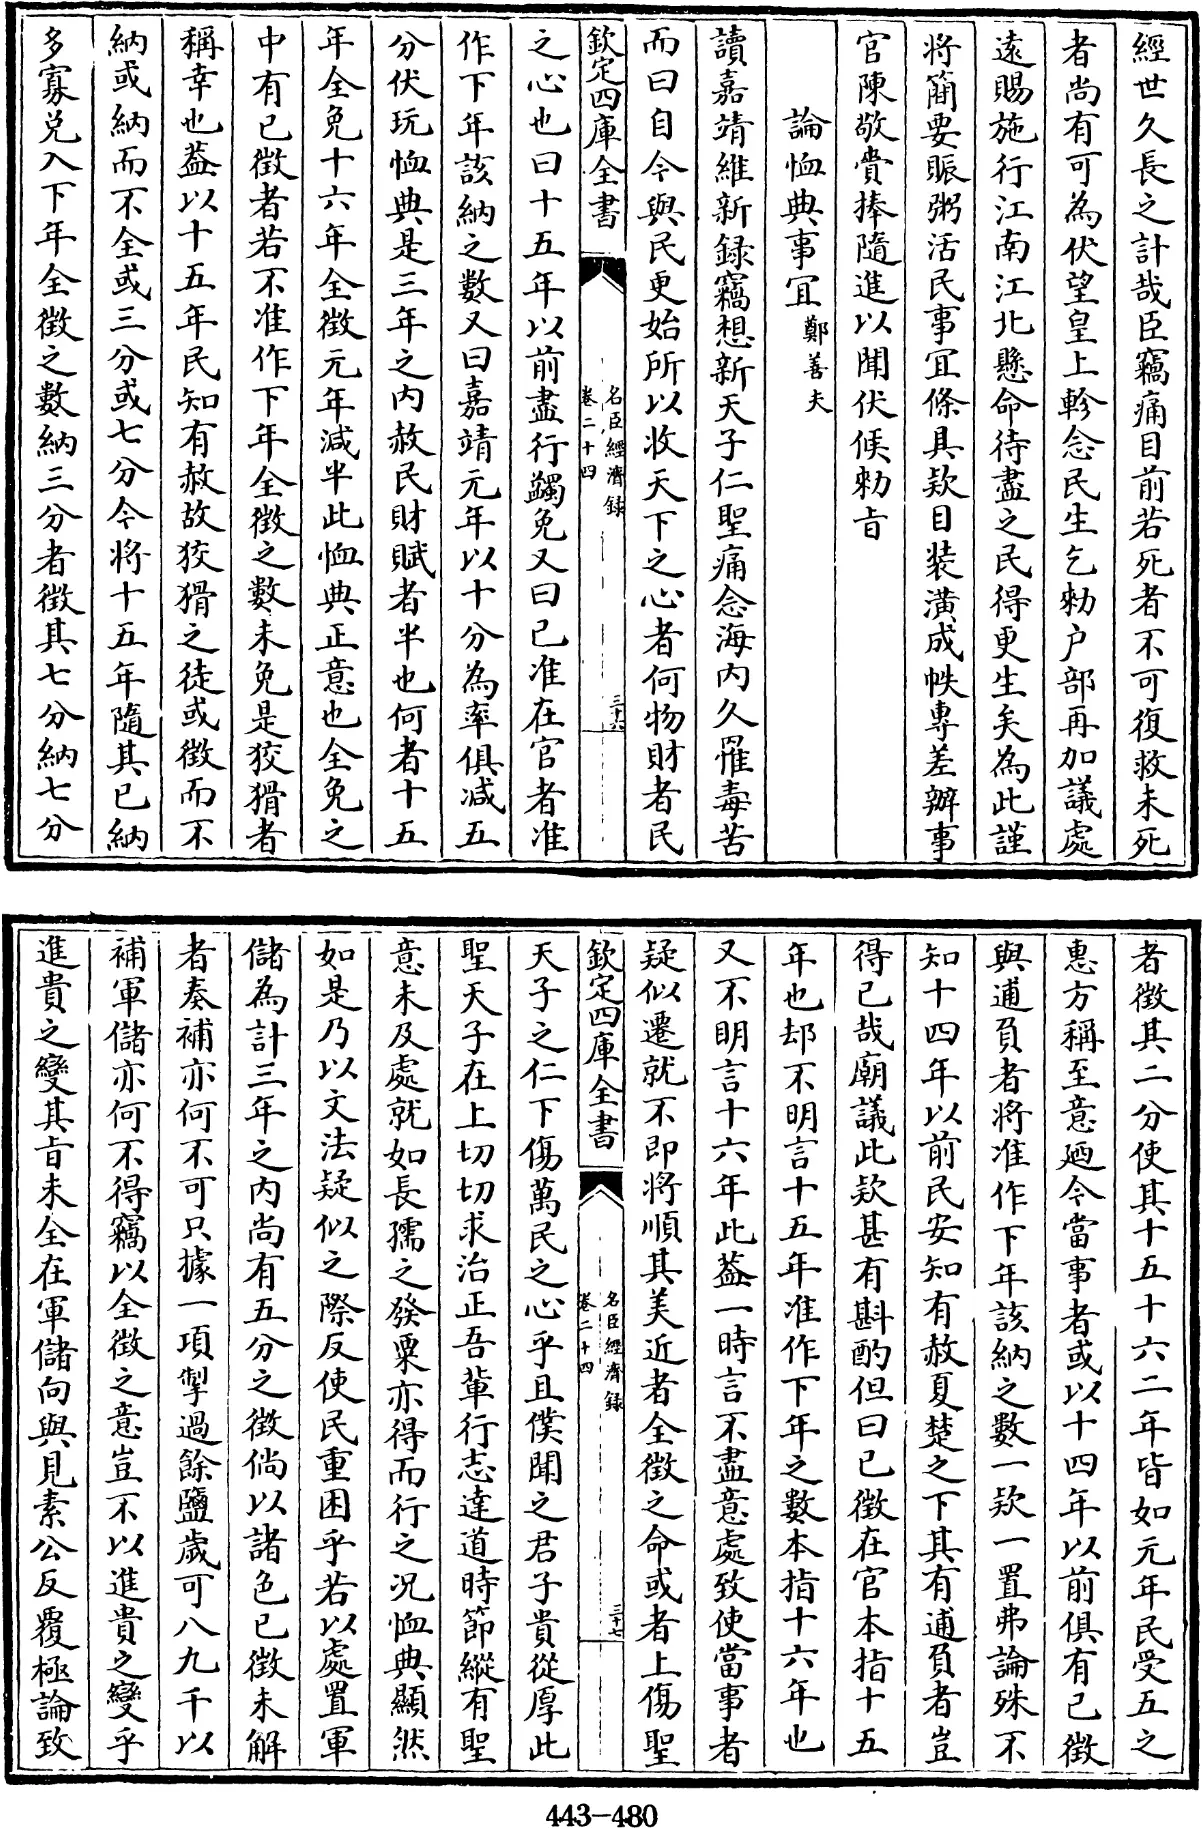 經世久長之計哉臣竊痛目前若死者不可復救未死
者尚有可為伏望皇上軫念民生乞勑户部再加議處
遠賜施行江南江北懸命待盡之民得更生矣為此謹
將簡要賑粥活民事宜條具欵目装潢成帙專差辦事
官陳敬賫捧隨進以聞伏候勑旨
論恤典事宜鄭善夫
讀嘉靖維新録竊想新天子仁聖痛念海内久罹毒苦
而曰自今與民更始所以收天下之心者何物財者民
欽定四庫全書
名臣經濟録
卷二十四
三十六
之心也曰十五年以前盡行蠲免又曰已准在官者准
作下年該納之數又曰嘉靖元年以十分為率俱減五
分伏玩恤典是三年之内赦民財賦者半也何者十五
年全免十六年全徵元年減半此恤典正意也全免之
中有已徵者若不准作下年全徵之數未免是狡猾者
稱幸也葢以十五年民知有赦故狡猾之徒或徵而不
納或納而不全或三分或七分今將十五年隨其已納
多寡兑入下年全徵之數納三分者徵其七分納七分
者徵其二分使其十五十六二年皆如元年民受五之
惠方稱至意廼今當事者或以十四年以前俱有已徵
與逋負者將准作下年該納之數一欵一置弗論殊不
知十四年以前民安知有赦夏楚之下其有逋負者豈
得已哉廟議此欵甚有斟酌但曰已徵在官本指十五
年也却不明言十五年准作下年之數本指十六年也
又不明言十六年此葢一時言不盡意處致使當事者
疑似遷就不即將順其美近者全徵之命或者上傷聖
欽定四庫全書
名臣經濟録
卷二十四
三十七
天子之仁下傷萬民之心乎且僕聞之君子貴從厚此
聖天子在上切切求治正吾軰行志達道時節縱有聖
意未及處就如長孺之發粟亦得而行之况恤典顯然
如是乃以文法疑似之際反使民重困乎若以處置軍
儲為計三年之内尚有五分之徵倘以諸色已徵未解
者奏補亦何不可只據一項掣過餘鹽歲可八九千以
補軍儲亦何不得竊以全徵之意豈不以進貴之變乎
進貴之變其旨未全在軍儲向與見素公反覆極論致
443-480